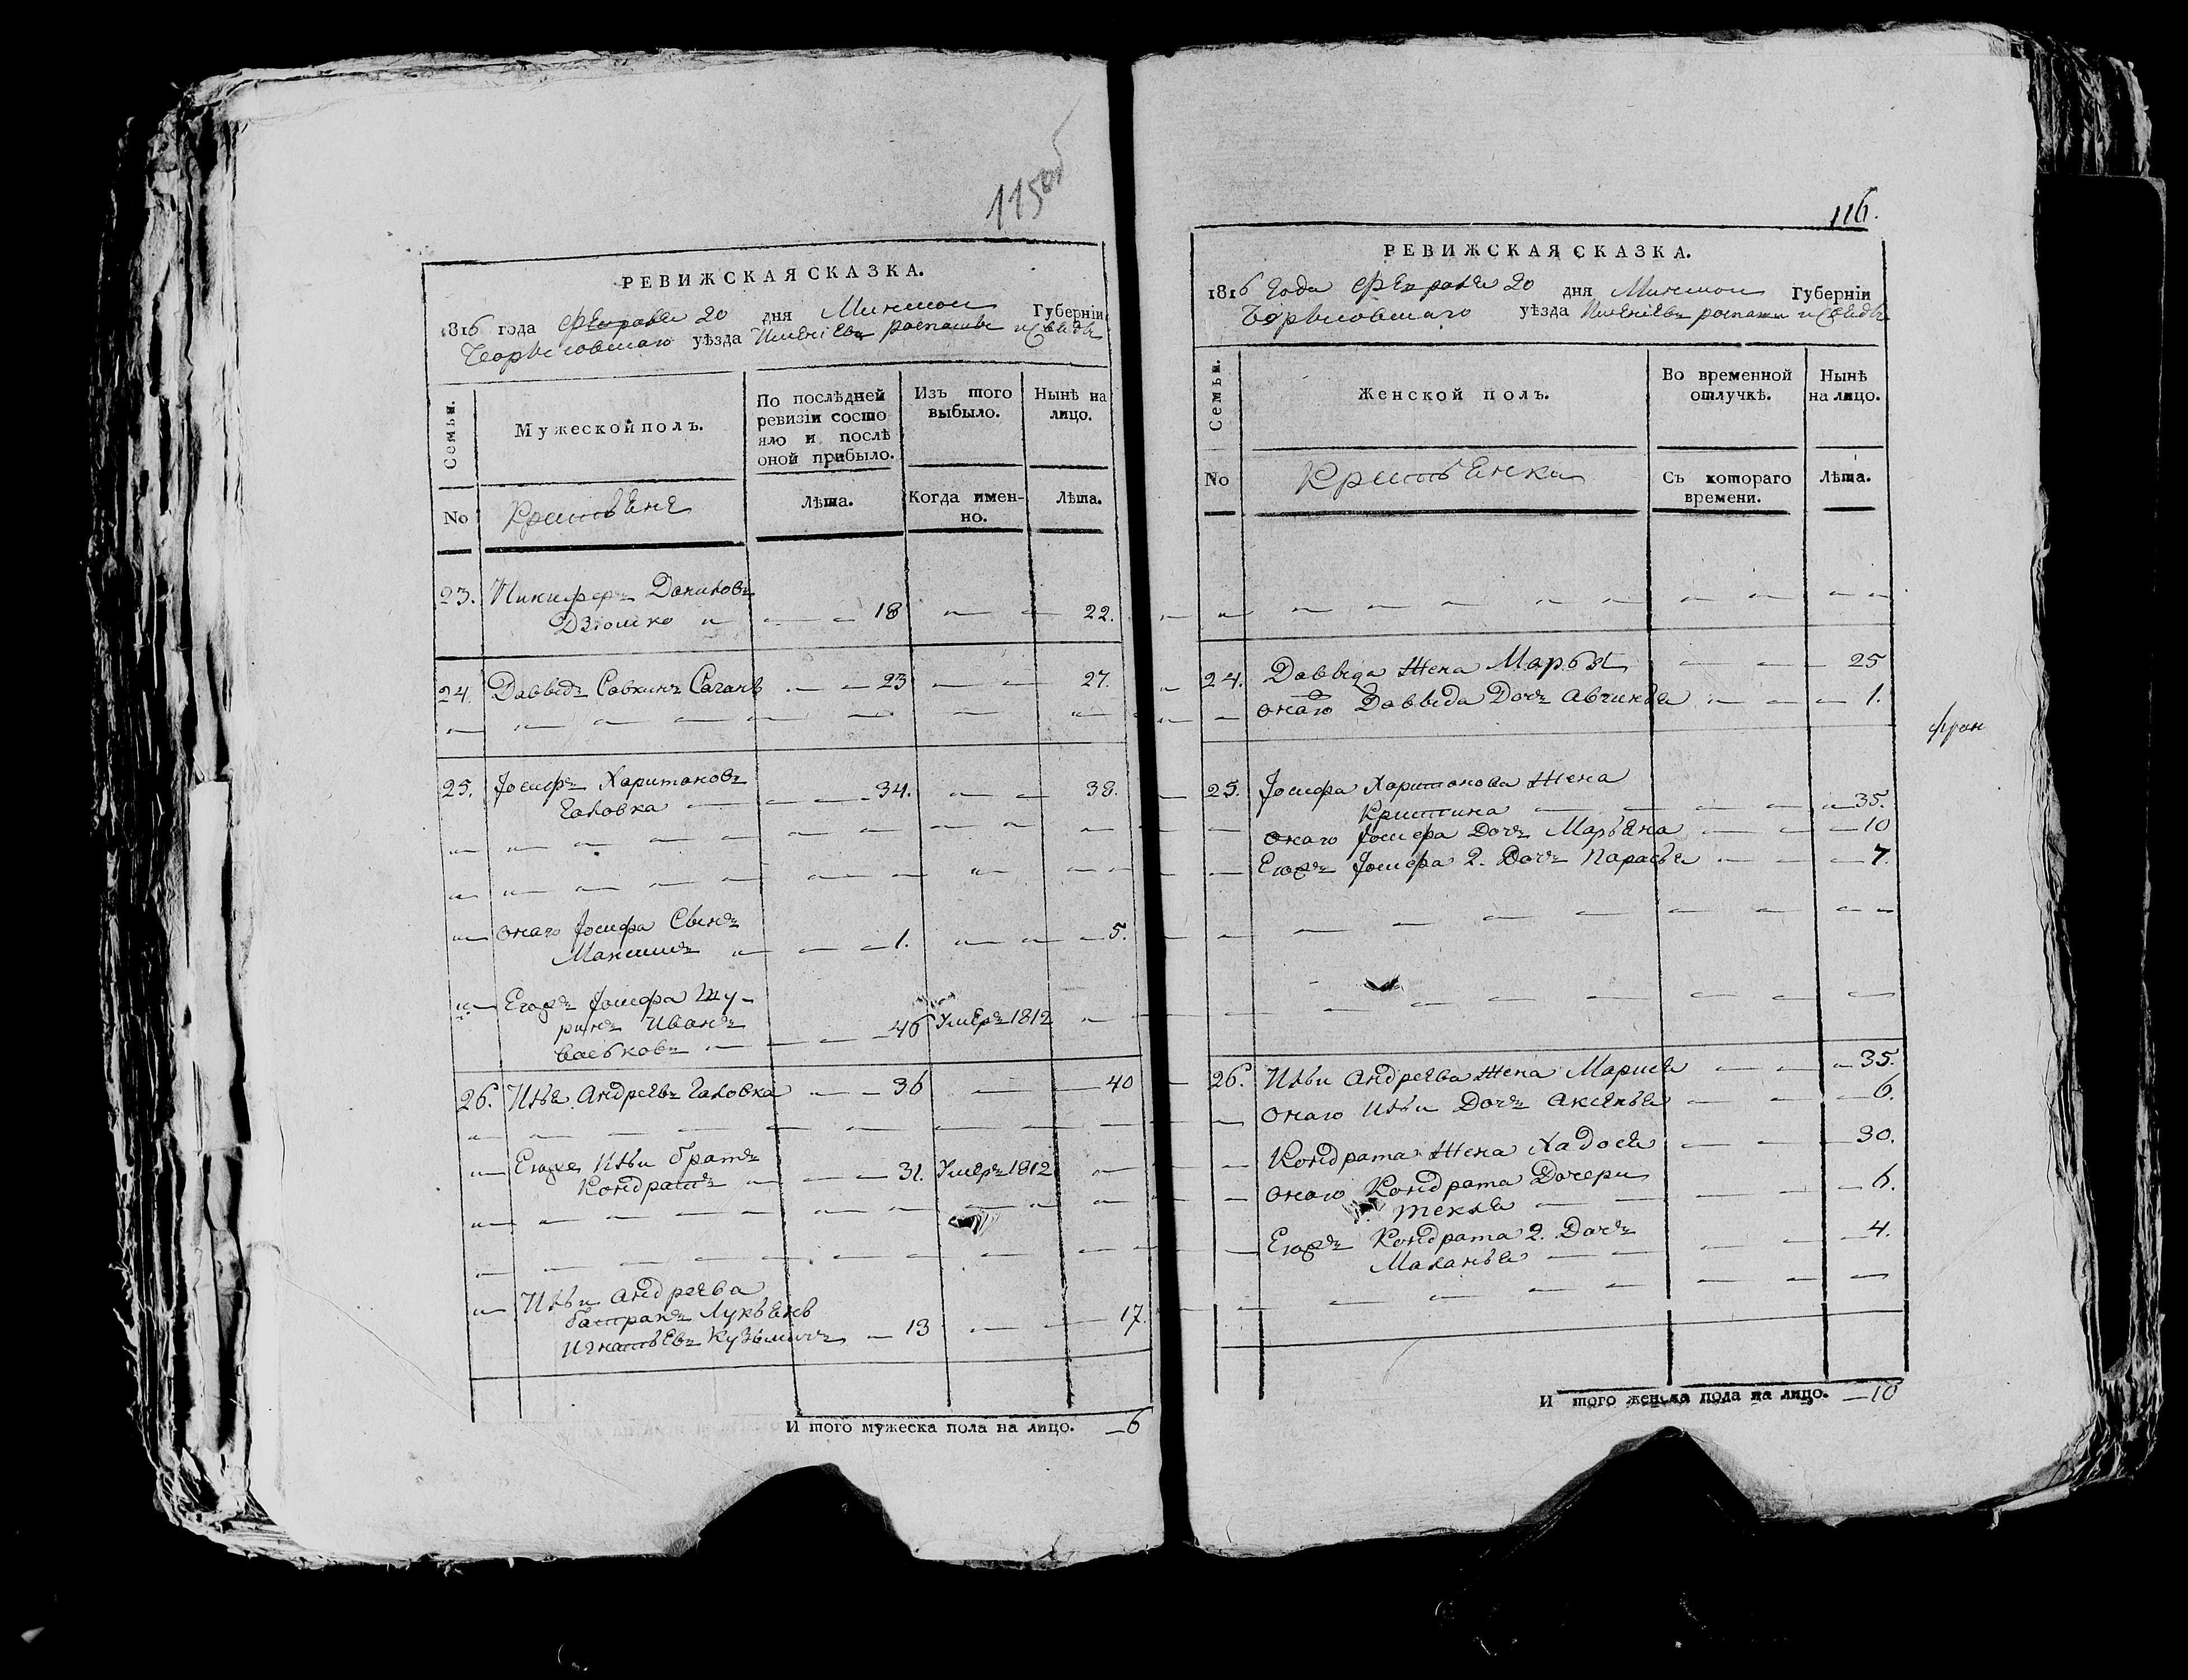 115 об
РЕВИЖСКАЯ СКАЗКА.
1816 года Февраля 20 дня Минской Губерніи
Борысовскаго уѣзда
Семьи.
Мужеской полъ.
По послѣдней ревизіи состояло и послѣ оной прибыло.
Изъ того выбыло.
Нынѣ на лицо.
No
Крестьяне
Лѣта.
Когда именно.
Лѣта.
23. Никифоръ Даниловъ
Дзюшко — 18 — 22.
24. Давыдъ Савкинъ Саганъ — 23 — 27.
25. Іосифъ Харитоновъ
Галовка — 34. — 38.
онаго Іосифа Сынъ
Максимъ — 1. — 5.
Егожъ Іосифа Шу-
ринъ Иванъ
Васьковъ — 46 Умеръ 1812 —
26. Илья Андреевъ Галовка — 36 — 40
Егоже Ильи братъ
Кондратъ — 31. Умеръ 1812 —
Ильи Андреева
батракъ Лукьянъ
Игнатьевъ Кузьмичъ — 13 — 17.
И того мужеска пола на лицо. — 6
116.
РЕВИЖСКАЯ СКАЗКА.
1816 года Февраля 20 дня Минской Губерніи
Борысовскаго уѣзда
Семьи.
Женской полъ.
Во временной отлучкѣ.
Нынѣ на лицо.
No
Крестьянки
Съ котораго времени.
Лѣта.
24. Давыда Жена Марья — 25
онаго Давыда Дочь — 1.
25. Іосифа Харитонова Жена
Кристина — 35.
онаго Іосифа Дочь Марьяна — 10
Егожъ Іосифа 2. Дочь Парасья — 7.
26. Ильи Андреева Жена Марися — 35.
онаго Ильи Дочь Аксинья — 6.
Кондрата Жена Хадося — 30.
онаго Кондрата Дочери
Текля — 6.
Егожъ Кондрата 2. Дочь
Маланья — 4.
И того женска пола на лицо. — 10